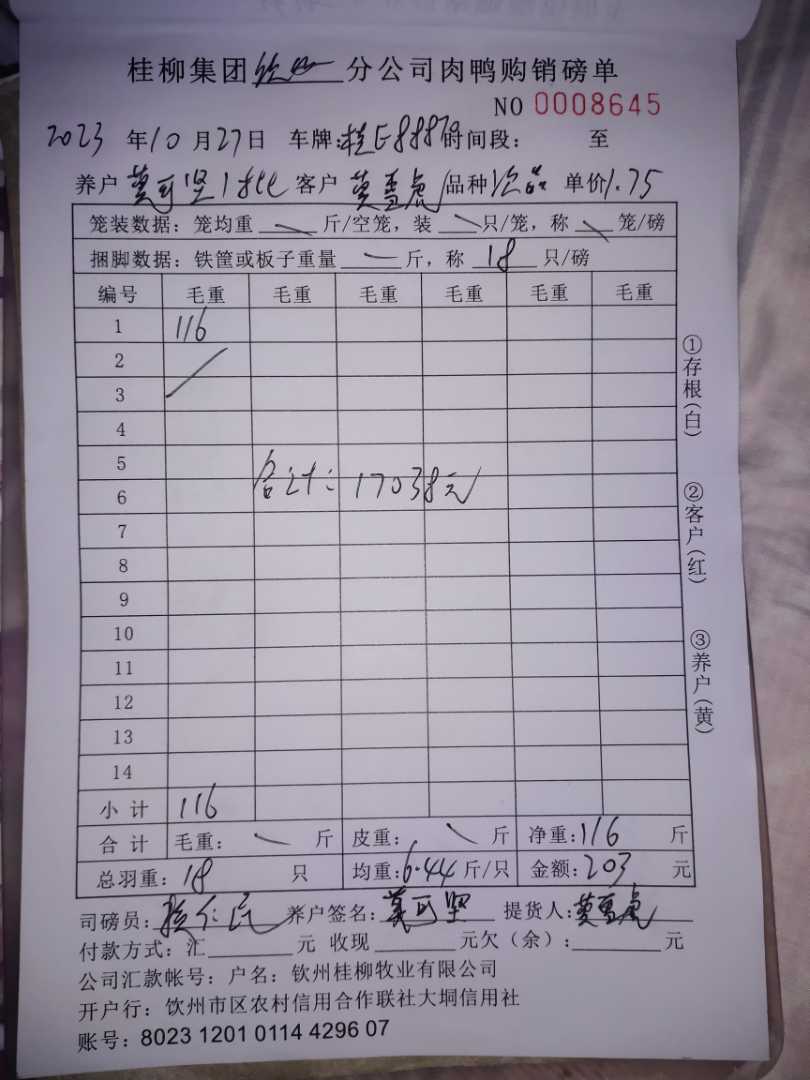 桂柳集团钦州分公司肉鸭购销磅单
NO 0008645
2023年10月27日 车牌:桂E88879时间段: 至
养户莫可坚1批 客户莫雪虎品种次品 单价1.75
笼装数据:笼均重 斤/空笼,装 只/笼,称 笼/磅
捆脚数据:铁筐或板子重量 斤,称18只/磅
编号 毛重 毛重 毛重 毛重 毛重 毛重
1 116
2
3
4
5
6
合计:17038元
7
8
9
10
11
12
13
14
小计 116
合计 毛重: 斤 皮重: 斤 净重:116斤
总羽重:18只 均重:6.44斤/只 金额:203元
司磅员: 养户签名:莫可坚 提货人:莫雪虎
付款方式:汇 元 收现 元欠(余): 元
公司汇款帐号:户名:钦州桂柳牧业有限公司
开户行:钦州市区农村信用合作联社大垌信用社
账号:8023 1201 0114 4296 07
①存根(白)
②客户(红)
③养户(黄)